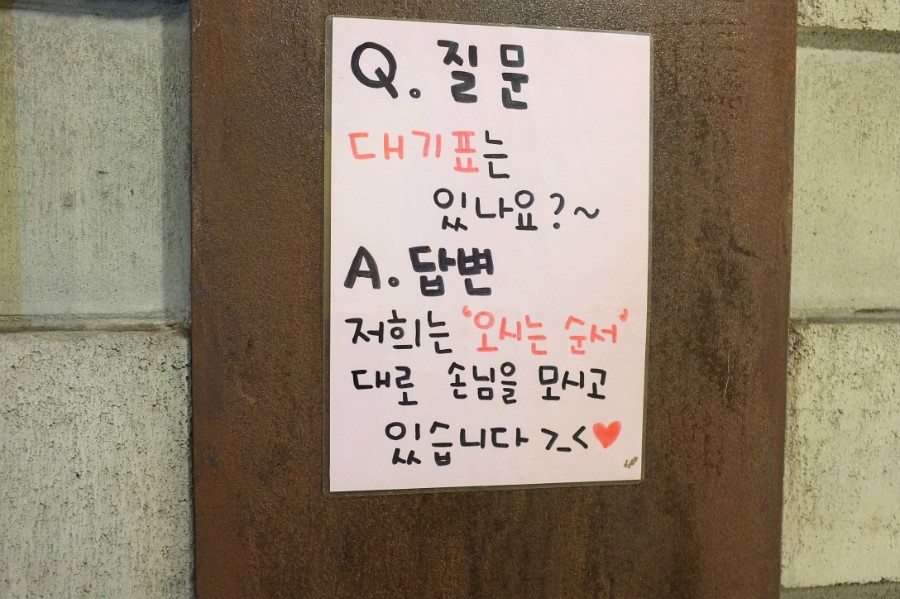 Q. 질문
대기표는
있나요?~
A. 답변
저희는 '오시는 순서'
대로 손님을 모시고
있습니다 >_<♥